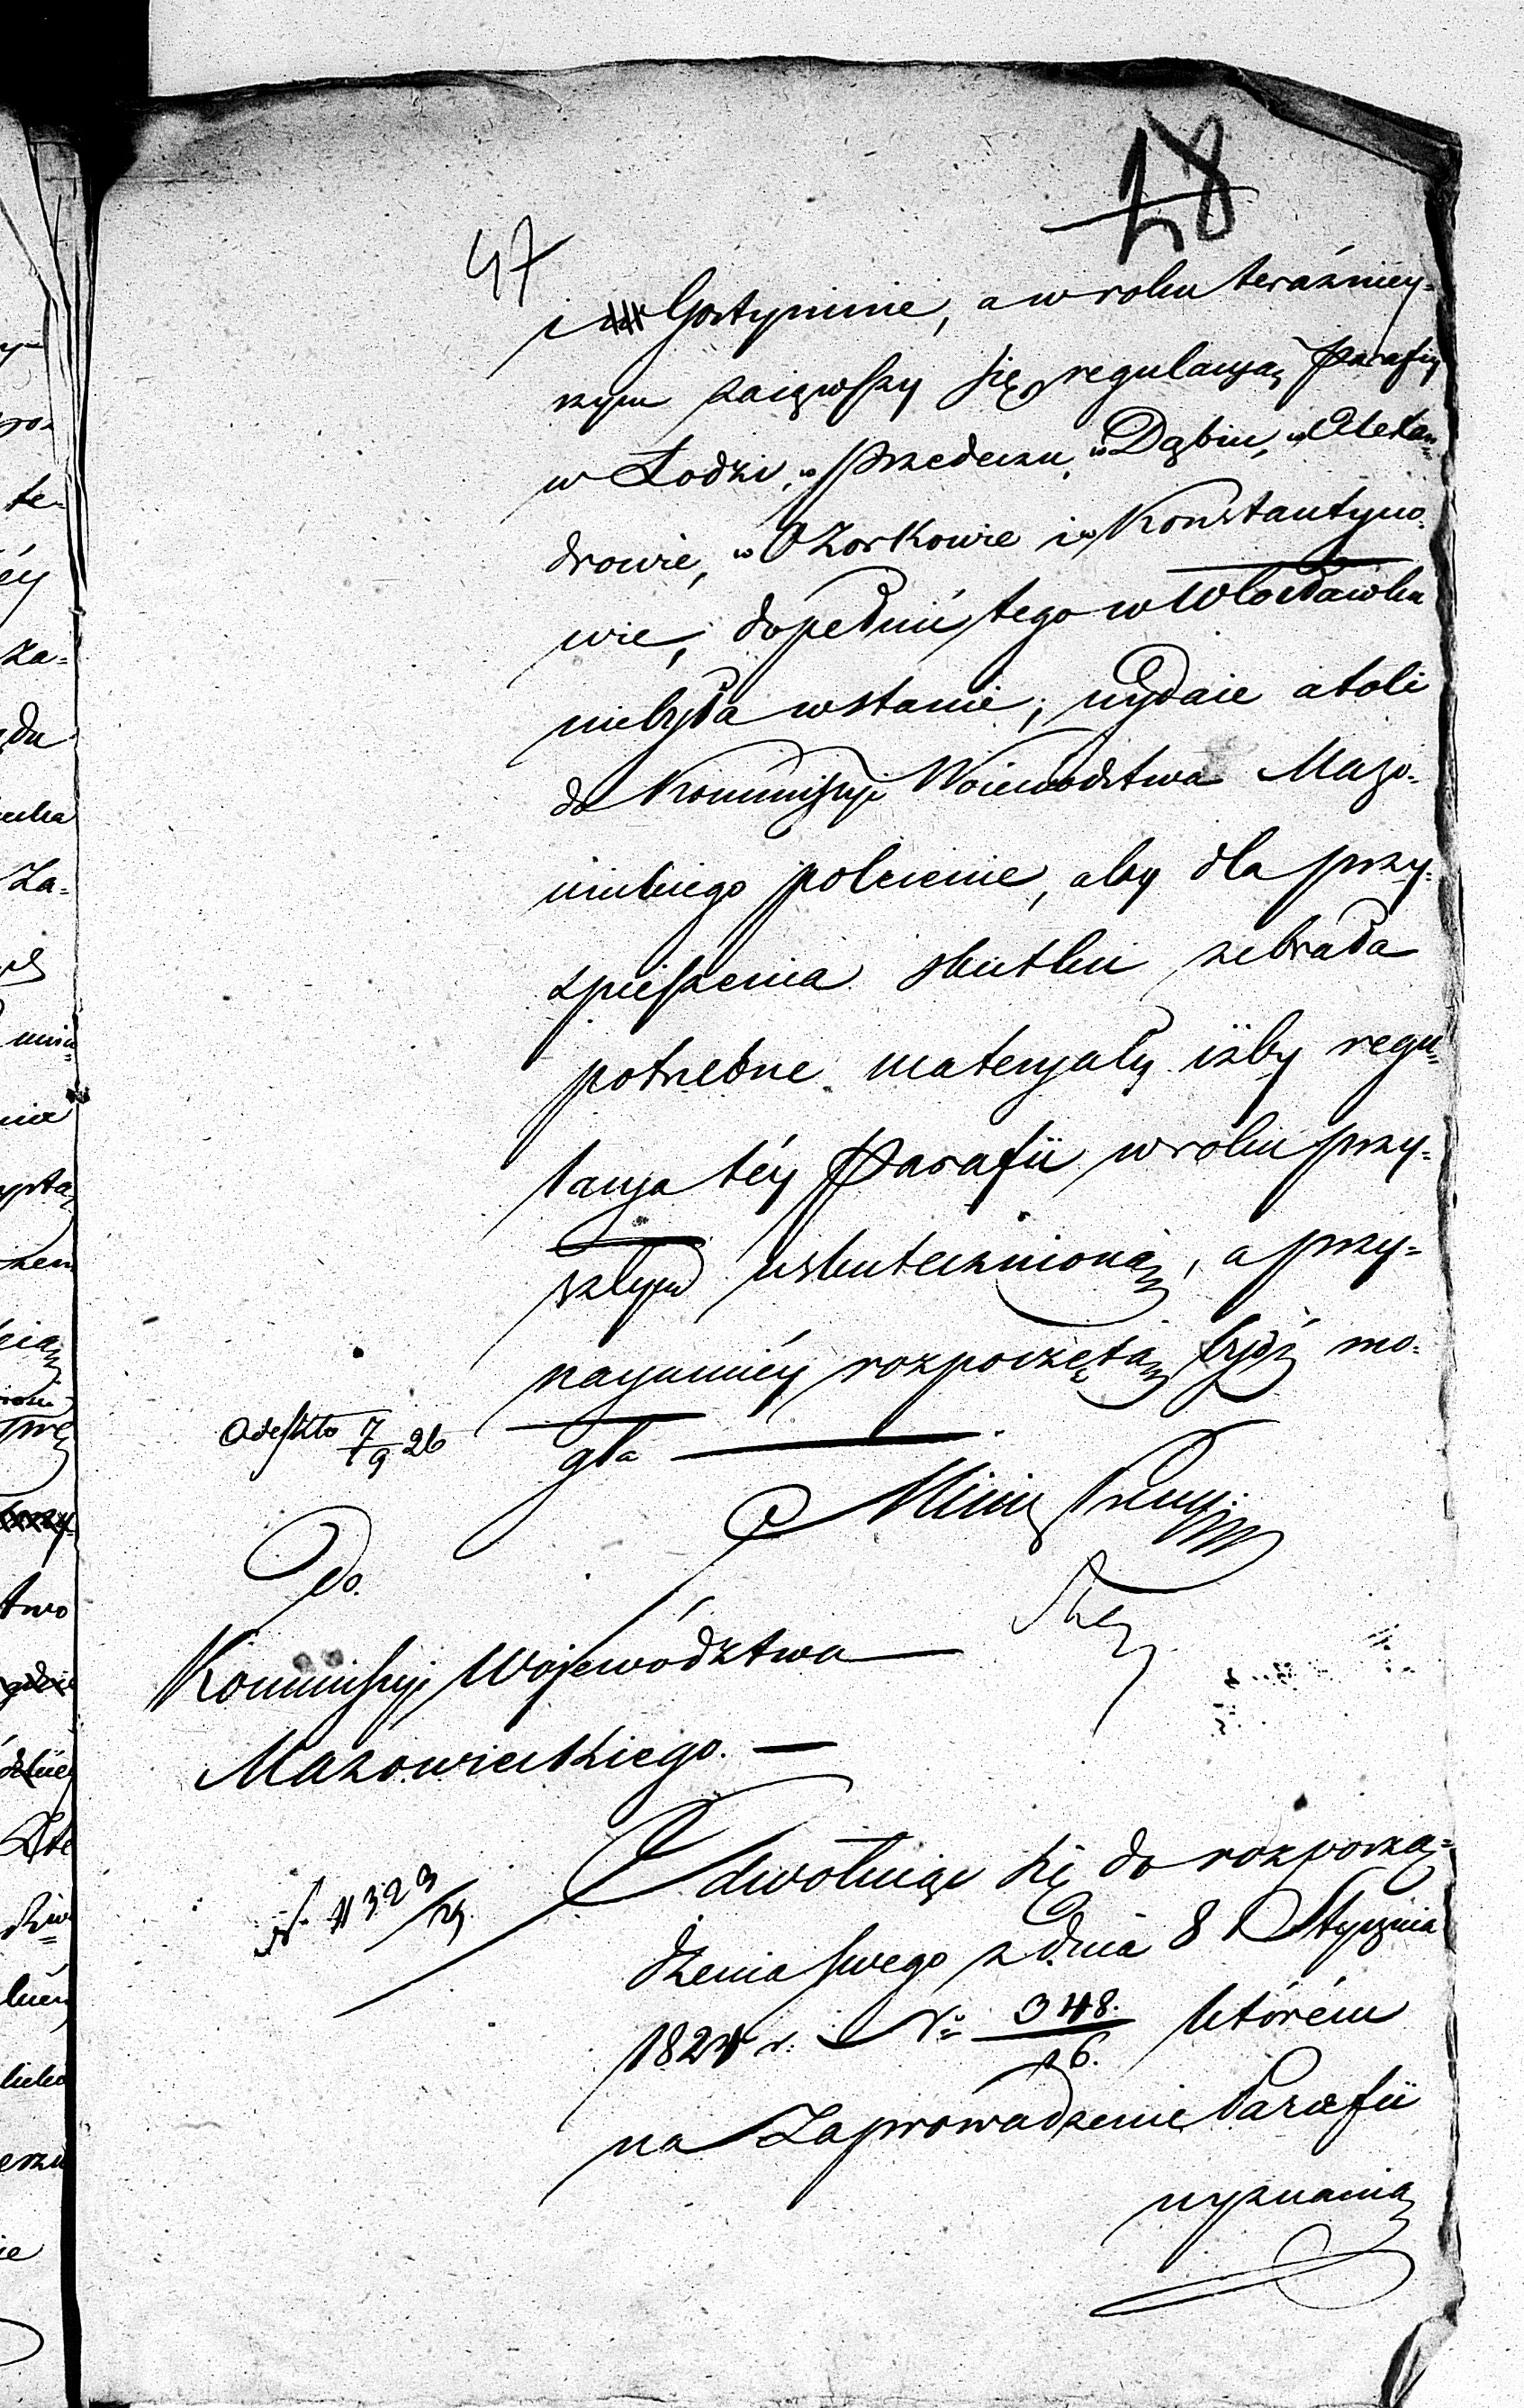 28
47
i Gostyninie, a w roku teraźniey-
szym zaiąwszy się regulacyą Parafiy
w Łodzi, w Przedeczu, w Dąbiu, w Alexan-
drowie, w Ozorkowie i w Konstantyno-
wie, dopełnić tego w Włocławku
niebyła wstanie; wydaie atoli
do Kommissyi Woiewództwa Mazo-
wieckiego polecenie, aby dla przy-
spieszenia skutku zebrała
potrzebne materyały iżby regu-
lacya téy Parafii w roku przy-
szłym uskutecznioną, a przy-
naymniéy rozpoczętą bydź mo-
gła
Odeszło 7/9 26
Minis Prezy
Do
Kommissyi Województwa
Mazowieckiego.
N. 11323/24
Odwołuiąc się do rozporzą-
dzenia swego z dnia 8 Stycznia
1824 r. No 348./26. którém
na Zaprowadzenie Parafii
wyznania